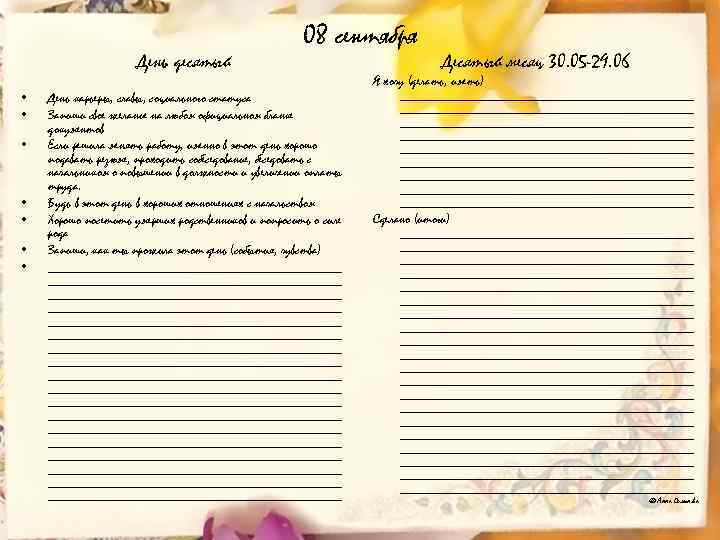 08 сентября
День десятый
• День карьеры, славы, социального статуса
• Запиши свое желание на любом официальном бланке
документов
• Если решила менять работу, именно в этот день хорошо
подавать резюме, проходить собеседование, беседовать с
начальником о повышении в должности и увеличении оплаты
труда.
• Будь в этот день в хороших отношениях с начальством
• Хорошо посетить умерших родственников и попросить о силе
рода
• Запиши, как ты прожила этот день (события, чувства)
•
Десятый месяц 30.05-29.06
Я хочу (делать, иметь)
Сделано (итог)
© Анна